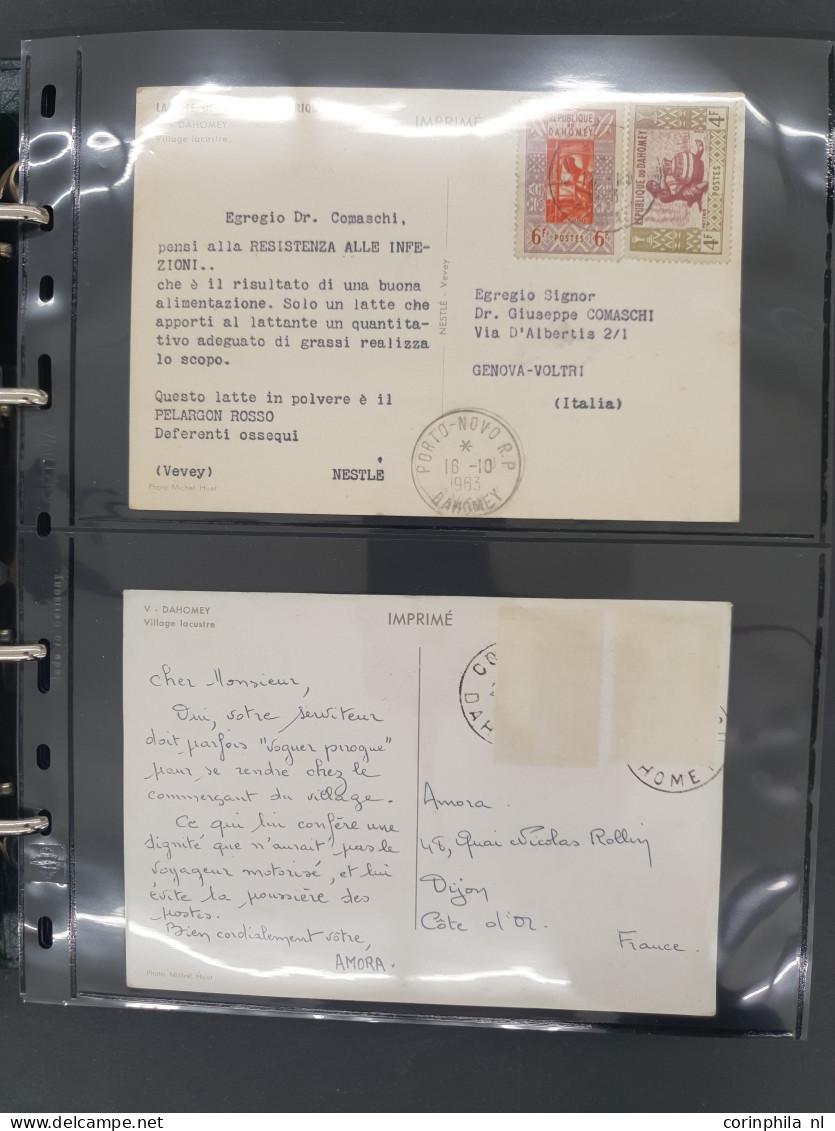 IMPRIMÉ
DAHOMEY
Village lacustre
RÉPUBLIQUE
DU
DAHOMEY
6F POSTES 6F
4F
RÉPUBLIQUE DU DAHOMEY
POSTES
4F
Egregio Dr. Comaschi,
pensi alla RESISTENZA ALLE INFE-
ZIONI..
che è il risultato di una buona
alimentazione. Solo un latte che
apporti al lattante un quantita-
tivo adeguato di grassi realizza
lo scopo.
Questo latte in polvere è il
PELARGON ROSSO
Deferenti ossequi
(Vevey) NESTLÉ
Photo Michel Huet
NESTLÉ - Vevey
Egregio Signor
Dr. Giuseppe COMASCHI
Via D'Albertis 2/1
GENOVA-VOLTRI
(Italia)
PORTO-NOVO R.P
*
16 -10
1963
DAHOMEY
V - DAHOMEY
Village lacustre
IMPRIMÉ
Cher Monsieur,
Oui, votre serviteur
doit parfois "voguer pirogue"
pour se rendre chez le
commerçant du village.
Ce qui lui confère une
dignité que n'aurait pas le
voyageur motorisé, et lui
évite la poussière des
postes.
Bien cordialement vôtre,
AMORA.
Photo Michel Huet
CO
DAH
HOME
Amora
48, Quai Nicolas Rollin
Dijon
Côte d'Or.
France.
corinphila nl